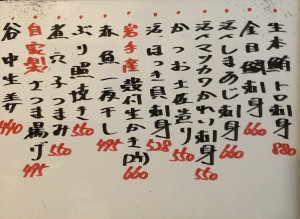 生本鮪トロ刺身 880
金目鯛刺身 660
活〆しまあじ刺身 660
活〆マツカワかれい刺身 550
かつお土佐造り 550
活ほっき貝刺身 528
岩手産殻付生かき(2ヶ) 660
赤魚一夜干し 495
ぶり照焼き 550
煮穴子つまみ 550
自家製さつま揚げ 495
谷中生姜 440